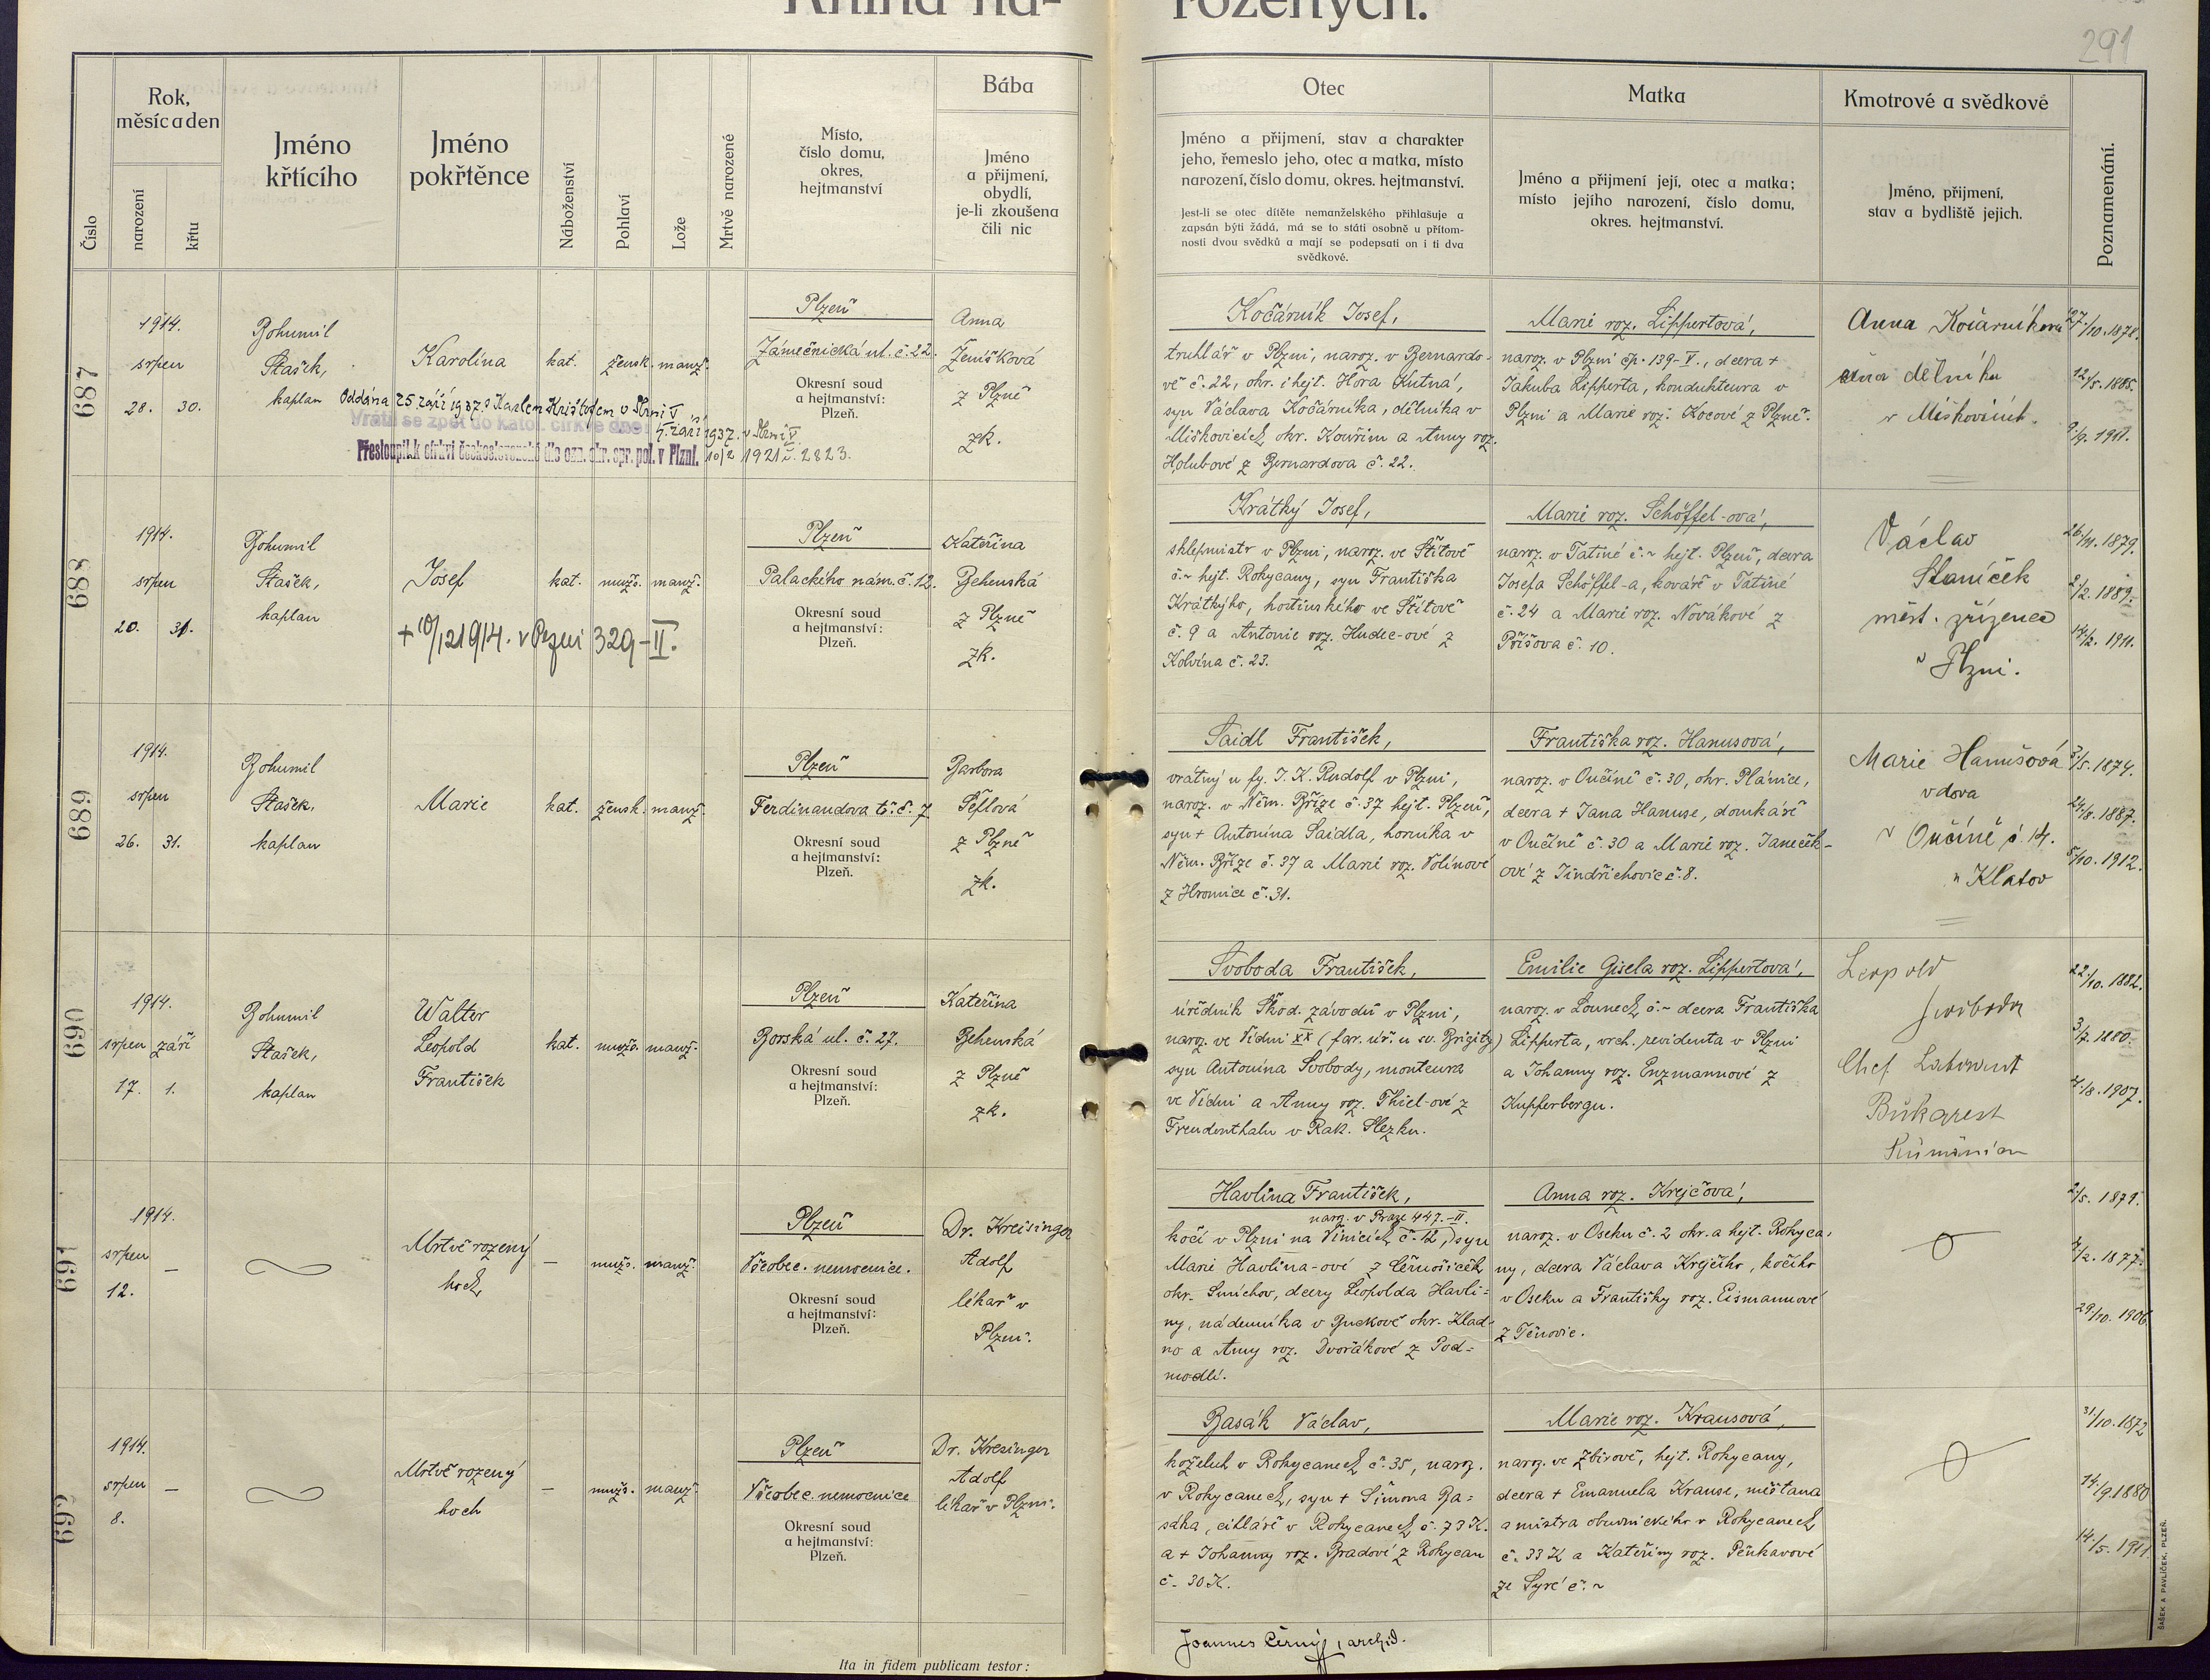 Kniha na- rozených.
291
Číslo
Rok,
měsíc a den
narození
křtu
Jméno
křtícího
Jméno
pokřtěnce
Náboženství
Pohlaví
Lože
Mrtvě narozené
Místo,
číslo domu,
okres,
hejtmanství
Bába
Jméno
a přijmení,
obydlí,
je-li zkoušena
čili nic
Otec
Jméno a přijmení, stav a charakter
jeho, řemeslo jeho, otec a matka, místo
narození, číslo domu, okres. hejtmanství.
Jest-li se otec dítěte nemanželského přihlašuje a
zapsán býti žádá, má se to státi osobně u přítom-
nosti dvou svědků a mají se podepsati on i ti dva
svědkové.
Matka
Jméno a přijmení její, otec a matka;
místo jejího narození, číslo domu,
okres. hejtmanství.
Kmotrové a svědkové
Jméno, přijmení,
stav a bydliště jejich.
Poznamenání.
687
1914.
srpen
28. 30.
Bohumil
Stašek,
kaplan
Karolina
kat.
žensk.
manž.
Oddána 25. září 1937 s Karlem Krištofem v Plzni V
Vrátil se zpět do katol. církve dne 4. září 1937. v Plzni V.
Přestoupil k církvi československé dle ozn. okr. spr. pol. v Plzni. 10/2 1921 č. 2823.
Plzeň
Zámečnická ul. č. 22.
Okresní soud
a hejtmanství:
Plzeň.
Anna
Ženíšková
z Plzně
zk.
Kočárník Josef,
truhlář v Plzni, naroz. v Bernardo-
vě č. 22, okr. i hejt. Hora Kutná,
syn Václava Kočárníka, dělníka v
Miškovicích okr. Kouřim a Anny roz.
Holubové z Bernardova č. 22.
Marie roz. Lippertová,
naroz. v Plzni čp. 139-V., dcera +
Jakuba Lipperta, kondukteura v
Plzni a Marie roz. Kocové z Plzně.
Anna Kočárníková
žena dělníka
v Miškovicích.
27./10. 1878.
12./5. 1885.
9./9. 1911.
688
1914.
srpen
20. 31.
Bohumil
Stašek,
kaplan
Josef
kat.
mužs.
manž.
+ 10/12 1914. v Plzni 329-II.
Plzeň
Palackého nám. č. 12.
Okresní soud
a hejtmanství:
Plzeň.
Kateřina
Behenská
z Plzně
zk.
Krátký Josef,
sklepmistr v Plzni, naroz. ve Štítově
č. ~ hejt. Rokycany, syn Františka
Krátkýho, hostinského ve Štítově
č. 9 a Antonie roz. Hudec-ové z
Kolvína č. 23.
Marie roz. Schöffel-ová,
naroz. v Tatiné č. ~ hejt. Plzeň, dcera
Josefa Schöffel-a, kováře v Tatiné
č. 24 a Marie roz. Novákové z
Příšova č. 10.
Václav
Staníček
měst. zřízenec
v Plzni.
26./11. 1879.
2./2. 1889.
14/2. 1911.
689
1914.
srpen
26. 31.
Bohumil
Stašek,
kaplan
Marie
kat.
žensk.
manž.
Plzeň
Ferdinandova tř. č. 7
Okresní soud
a hejtmanství:
Plzeň.
Barbora
Šeflová
z Plzně
zk.
Saidl František,
vrátný u fy. J. K. Rudolf v Plzni,
naroz. v Něm. Bříze č. 37 hejt. Plzeň,
syn + Antonína Saidla, horníka v
Něm. Bříze č. 37 a Marie roz. Volínové
z Hromice č. 31.
Františka roz. Hanusová,
naroz. v Ončíně č. 30, okr. Plánice,
dcera + Jana Hanuse, domkáře
v Ončíně č. 30 a Marie roz. Janeček-
ové z Jindřichovic č. 8.
Marie Hanušová
vdova
v Ončíně č. 14.
u Klatov
/5. 1874.
24./8. 1887.
/10. 1912.
690
1914.
srpen září
17. 1.
Bohumil
Stašek,
kaplan
Walter
Leopold
František
kat.
mužs.
manž.
Plzeň
Borská ul. č. 27.
Okresní soud
a hejtmanství:
Plzeň.
Kateřina
Behenská
z Plzně
zk.
Svoboda František,
úředník Škod. závodů v Plzni,
naroz. ve Vídni XX (far. úř. u sv. Brigity)
syn Antonína Svobody, monteura
ve Vídni a Anny roz. Thiel-ové z
Freudenthalu v Rak. Slezku.
Emilie Gisela roz. Lippertová,
naroz. v Lounech č. ~ dcera Františka
Lipperta, vrch. revidenta v Plzni
a Johanny roz. Enzmannové z
Kupferbergu.
Leopold
Swoboda
Chef Laborant
Bukarest
Rumänien
22./10. 1882.
3./7. 1880.
7./8. 1907.
691
1914.
srpen
12.
—
Mrtvě rozený
hoch
—
mužs.
manž.
Plzeň
Všeobec. nemocnice.
Okresní soud
a hejtmanství:
Plzeň.
Dr. Kreisinger
Adolf
lékař v
Plzni.
Havlina František,
naroz. v Praze 447.-II.
kočí v Plzni na Vinicích č. 12, syn
Marie Havlina-ové z Černošiček
okr. Smíchov, dcery Leopolda Havli-
ny, nádenníka v Buckově okr. Klad-
no a Anny roz. Dvořákové z Pod-
modlí.
Anna roz. Krejčová,
naroz. v Oseku č. 2 okr. a hejt. Rokyca-
ny, dcera Václava Krejčího, kočího
v Oseku a Františky roz. Eismannové
z Těnovic.
/5. 1879.
/2. 1877.
29./10. 1906.
692
1914.
srpen
8.
—
Mrtvě rozený
hoch
—
mužs.
manž.
Plzeň
Všeobec. nemocnice
Okresní soud
a hejtmanství:
Plzeň.
Dr. Kresinger
Adolf
lékař v Plzni.
Basák Václav,
koželuh v Rokycanech č. 35, naroz.
v Rokycanech, syn + Šimona Ba-
sáka, cihláře v Rokycanech č. 73 K.
a + Johanny roz. Bradové z Rokycan
č. 30 K.
Marie roz. Krausová,
naroz. ve Zbirově, hejt. Rokycany,
dcera + Emanuela Krause, měšťana
a mistra obuvnického v Rokycanech
č. 33 K a Kateřiny roz. Pěnkavové
ze Syré č. ~
31./10. 1872
14./9. 1880
14./5. 1911
Ita in fidem publicam testor:
Joannes Černý, archid.
ŠAŠEK A PAVLÍČEK, PLZEŇ.